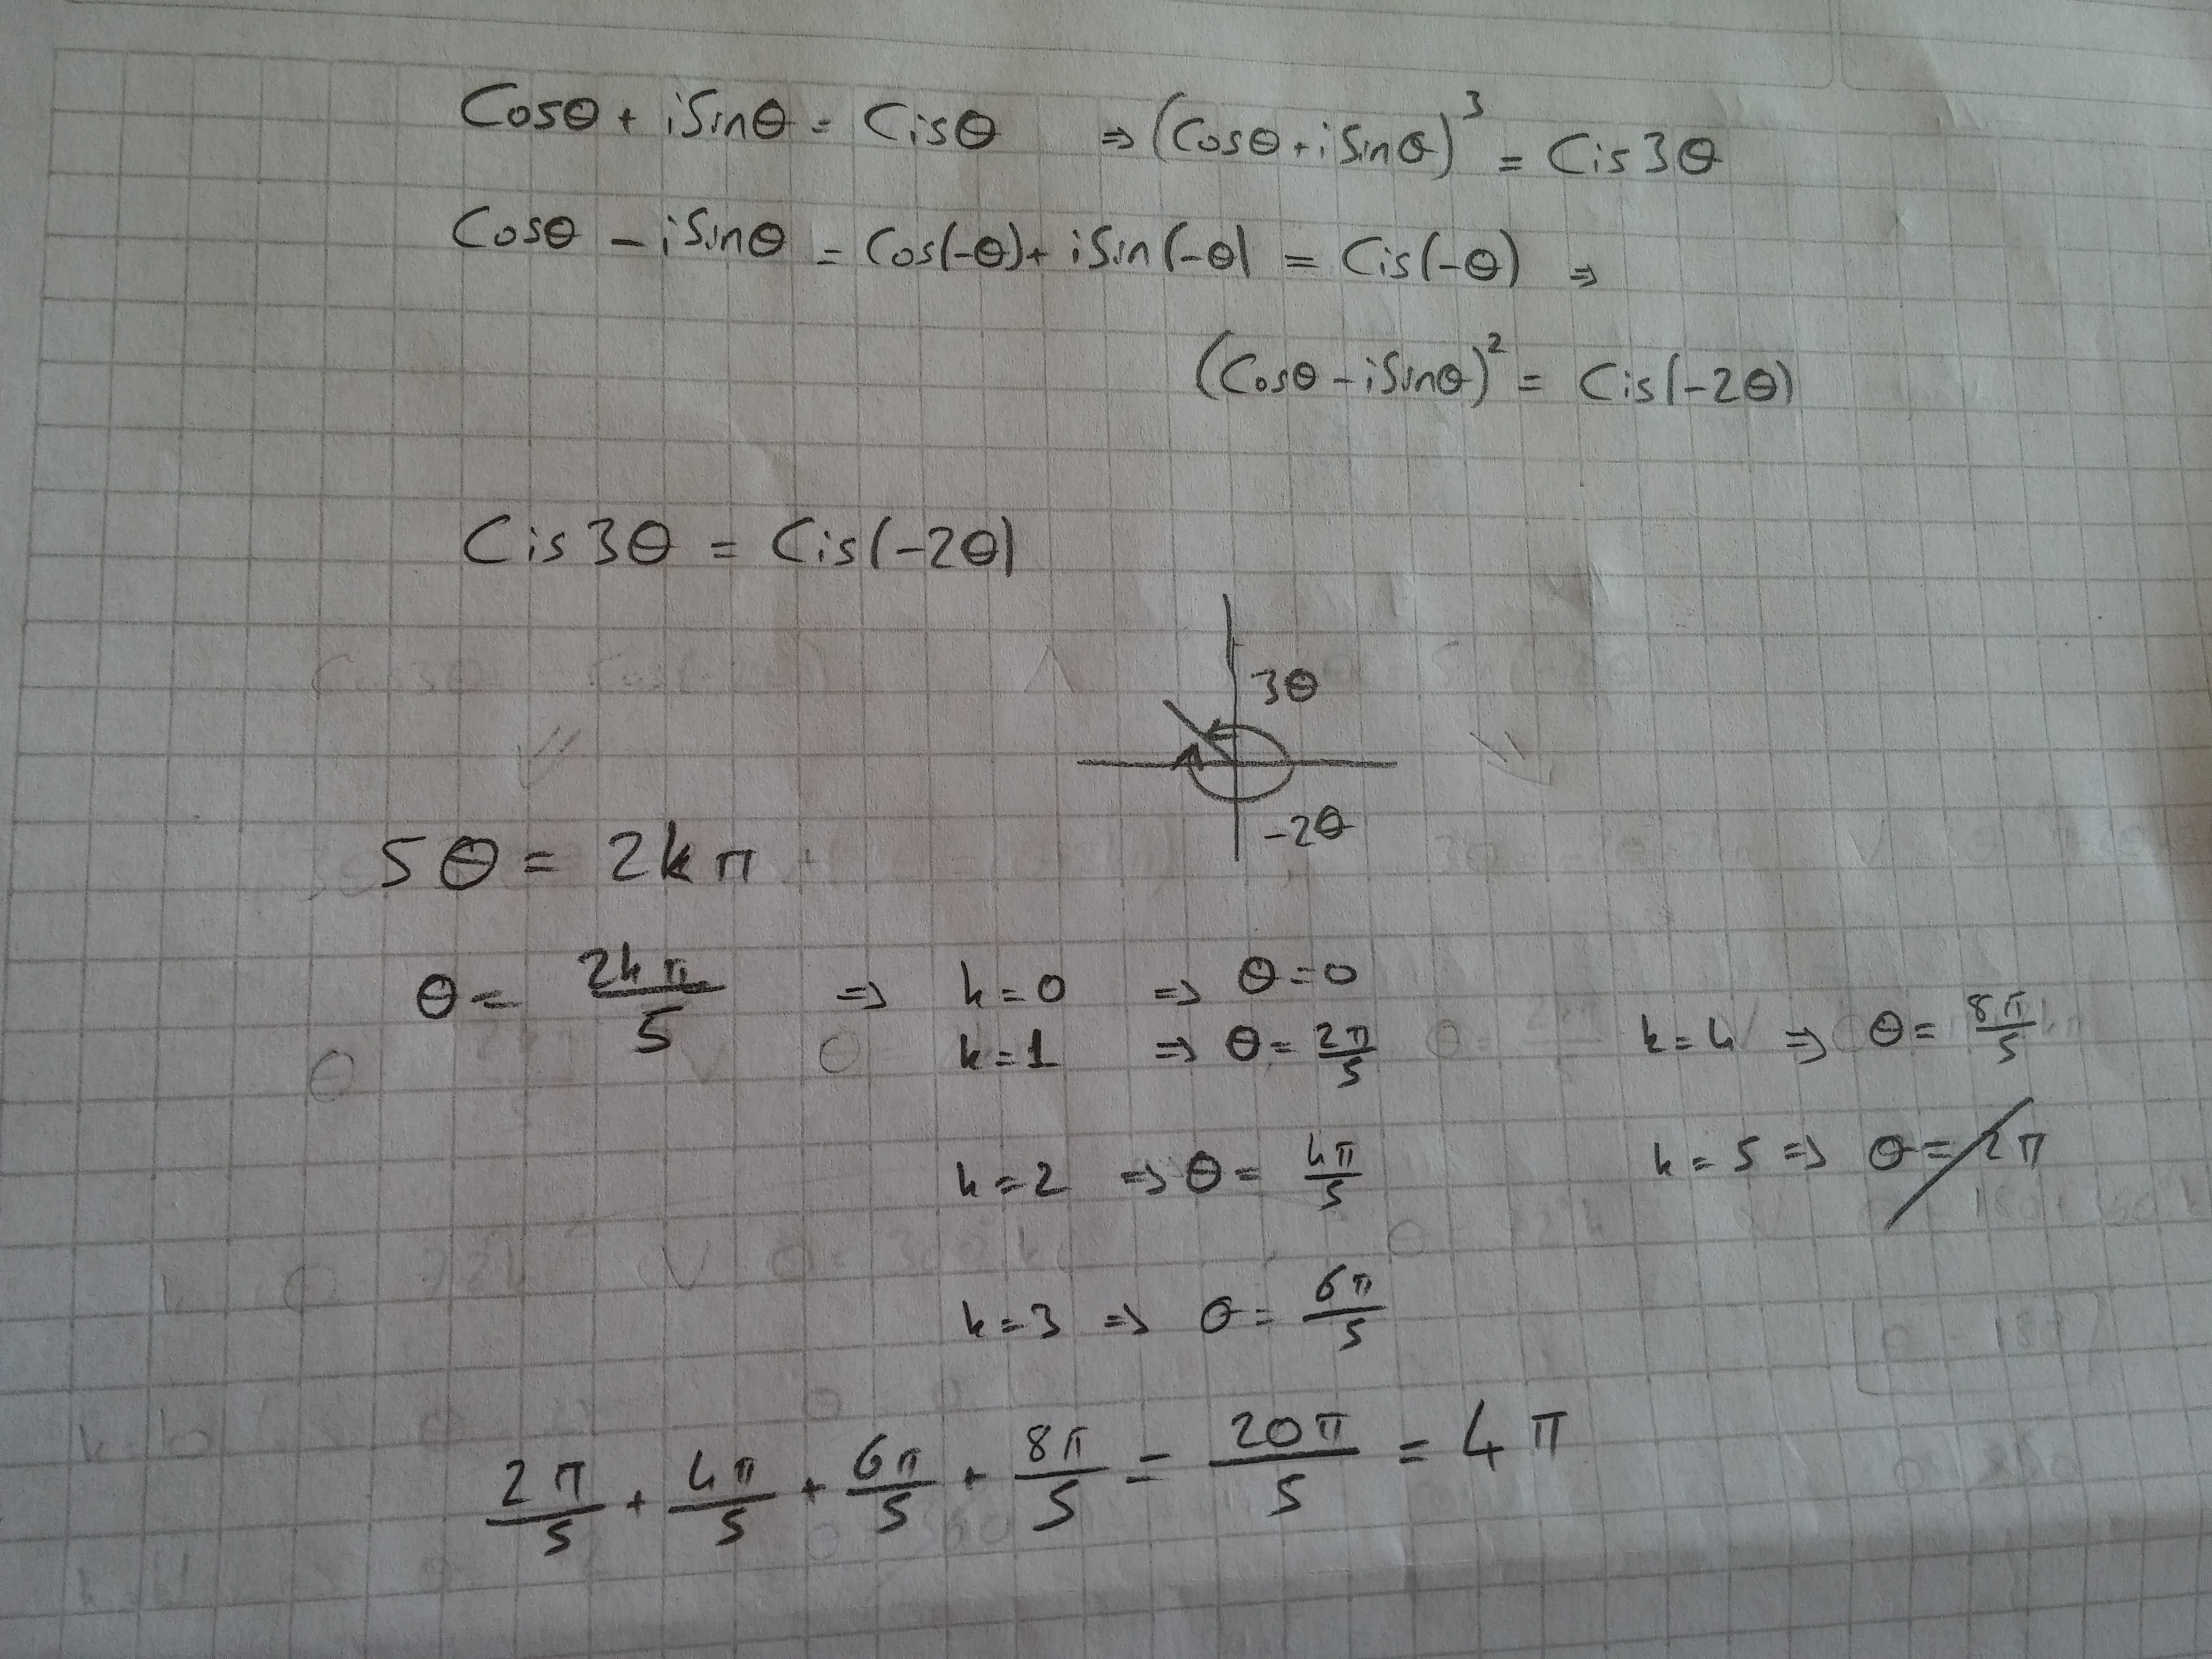 Cosθ + iSinθ = Cisθ ⇒ (Cosθ + iSinθ)³ = Cis3θ
Cosθ - iSinθ = Cos(-θ) + iSin(-θ) = Cis(-θ) ⇒
(Cosθ - iSinθ)² = Cis(-2θ)
Cis3θ = Cis(-2θ)
3θ
-2θ
5θ = 2kπ
θ = 2kπ/5 ⇒ k=0 ⇒ θ=0
k=1 ⇒ θ = 2π/5
k=4 ⇒ θ = 8π/5
k=2 ⇒ θ = 4π/5
k=5 ⇒ θ = 2π
k=3 ⇒ θ = 6π/5
2π/5 + 4π/5 + 6π/5 + 8π/5 = 20π/5 = 4π